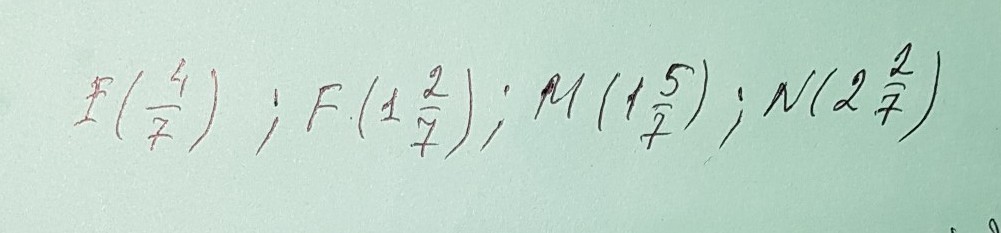 E(4/7) ; F(1 2/7); M(1 5/7); N(2 2/7)